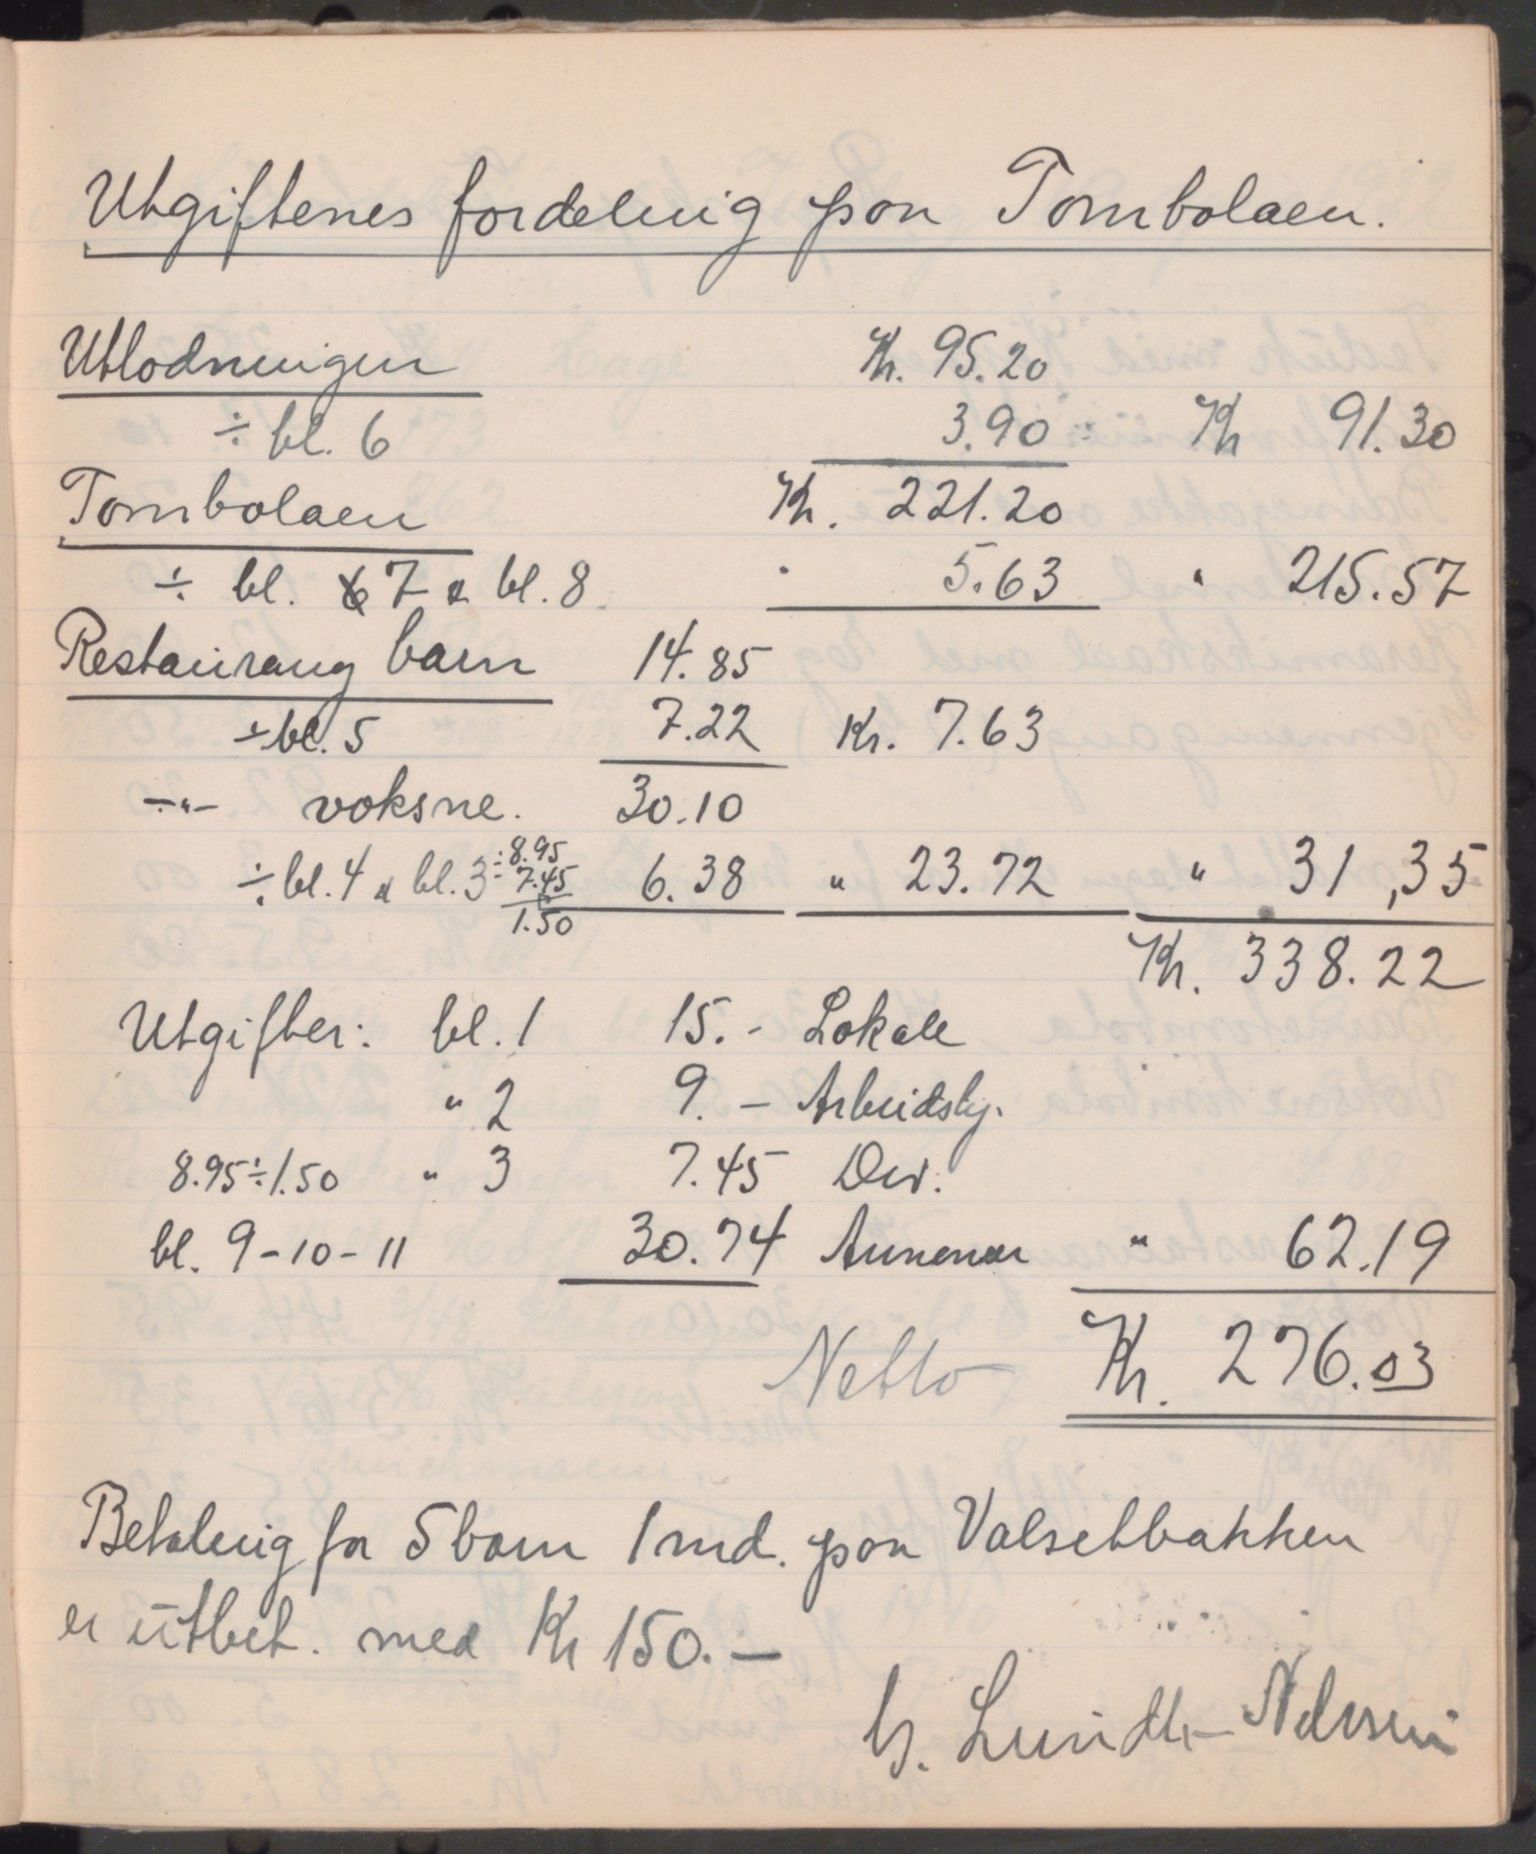 Utgiftenes fordeling paa Tombolaen.
Utlodningen Kr. 95.20
÷ bl. 6 3.90 Kr 91.30
Tombolaen Kr. 221.20
÷ bl. 7 & bl. 8 " 5.63 " 215.57
Restaurang barn 14.85
÷ bl. 5 7.22 Kr. 7.63
-"- voksne. 30.10
÷ bl. 4 & bl. 3 ÷ 8.95 7.45 1.50 6.38 " 23.72 " 31,35
Kr. 338.22
Utgifter: bl. 1 15.- Lokale
" 2 9.- Arbeidshj.
8.95÷1.50 " 3 7.45 Div.
bl. 9-10-11 30.74 Annonser " 62.19
Netto Kr. 276.03
Betaling for 5 barn 1 md. paa Valsetbakken
er utbet. med Kr 150.-
Lund-Nilssen